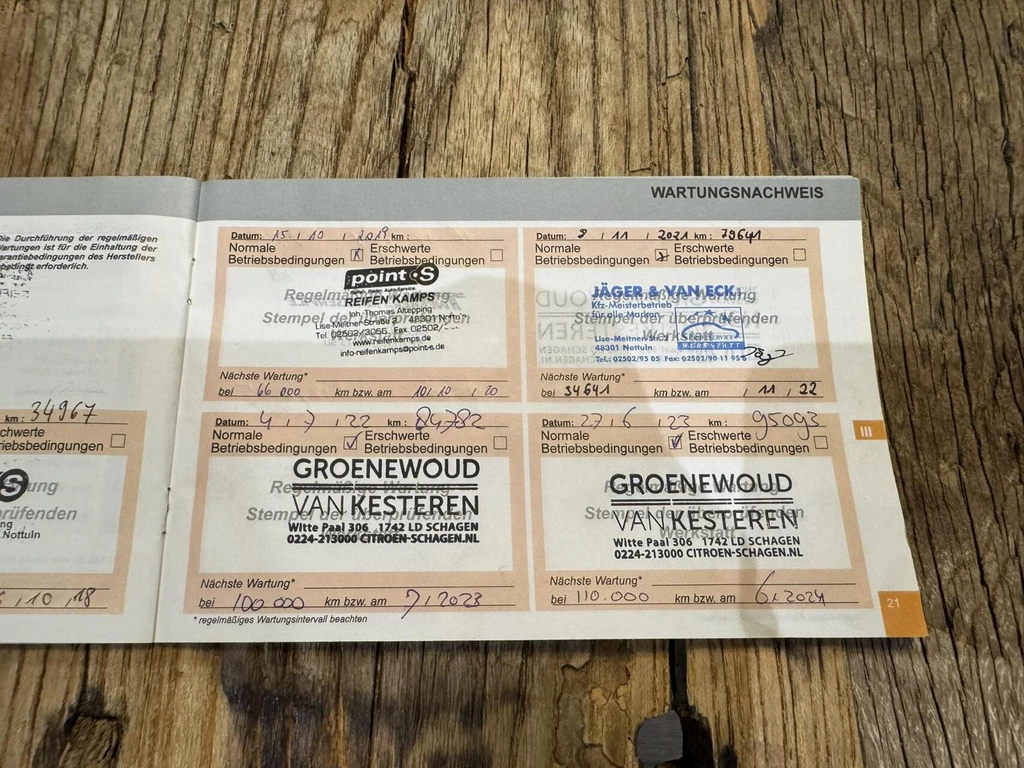 WARTUNGSNACHWEIS
Die Durchführung der regelmäßigen
Wartungen ist für die Einhaltung der
Garantiebedingungen des Herstellers
unbedingt erforderlich.
km: 34967
Erschwerte
Betriebsbedingungen
Nottuln
10 / 18
Datum: 15. / 10 / 2019 km:
Normale Betriebsbedingungen X Erschwerte Betriebsbedingungen
point S
REIFEN KAMPS
Inh. Thomas Altepping
Lise-Meitner-Straße 2 / 48301 Nottuln
Tel. 02502/3066, Fax 02502/
www.reifenkamps.de
info-reifenkamps@point-s.de
Regelmäßige Wartung
Stempel der überprüfenden
Werkstatt
Nächste Wartung*
bei 66 000 km bzw. am 10 / 10 / 20
Datum: 8 / 11 / 2021 km: 79641
Normale Betriebsbedingungen X Erschwerte Betriebsbedingungen
JÄGER & VAN ECK
Kfz-Meisterbetrieb
für alle Marken
Lise-Meitner-Str.
48301 Nottuln
Tel.: 02502/95 05 Fax: 02502/90 11 95
Regelmäßige Wartung
Stempel der überprüfenden
Werkstatt
Nächste Wartung*
bei 34641 km bzw. am / 11 / 22
Datum: 4 / 7 / 22 km: 84782
Normale Betriebsbedingungen ✓ Erschwerte Betriebsbedingungen
GROENEWOUD
VAN KESTEREN
Witte Paal 306 1742 LD SCHAGEN
0224-213000 CITROEN-SCHAGEN.NL
Regelmäßige Wartung
Stempel der überprüfenden
Werkstatt
Nächste Wartung*
bei 100 000 km bzw. am 7 / 2023
Datum: 27 / 6 / 23 km: 95093
Normale Betriebsbedingungen ✓ Erschwerte Betriebsbedingungen
GROENEWOUD
VAN KESTEREN
Witte Paal 306 1742 LD SCHAGEN
0224-213000 CITROEN-SCHAGEN.NL
Regelmäßige Wartung
Stempel der überprüfenden
Werkstatt
Nächste Wartung*
bei 110.000 km bzw. am 6 / 2024
* regelmäßiges Wartungsintervall beachten
III
21